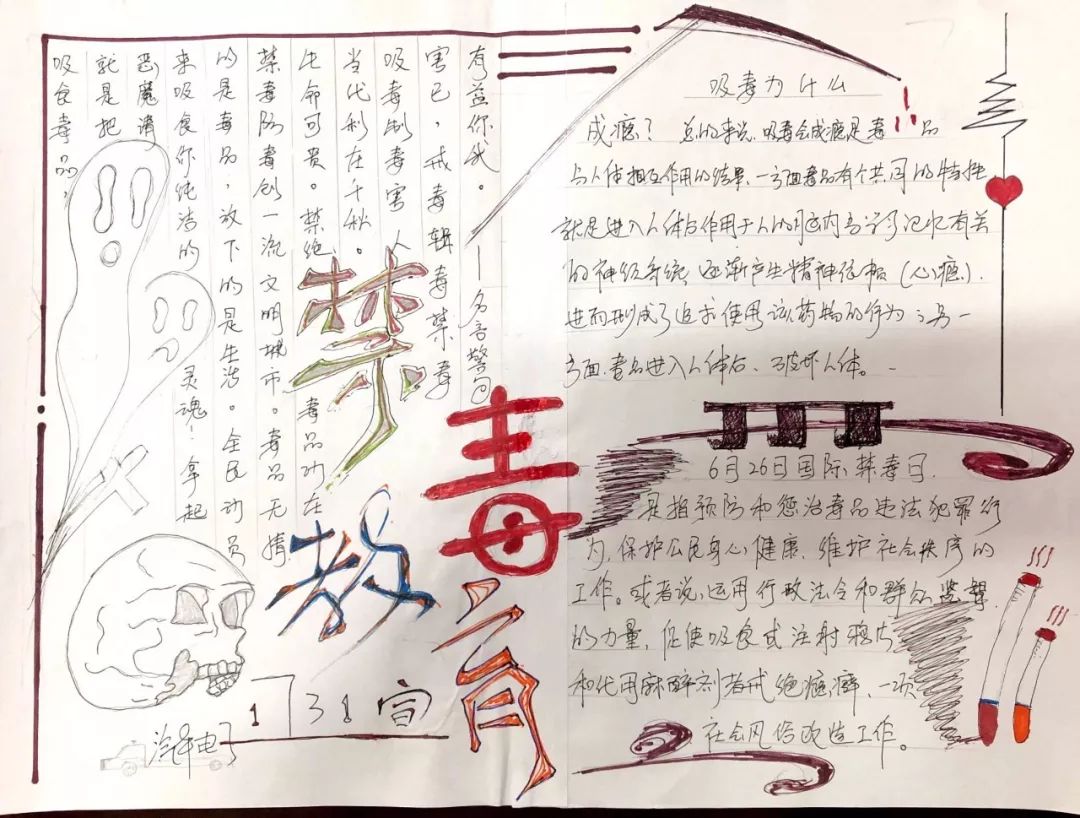 吸食毒品，
就是把
恶魔请
来吸食你纯洁的灵魂！拿起
的是毒品，放下的是生活。全民动员
禁毒防毒创一流文明城市。毒品无情
生命可贵。禁绝毒品功在
当代利在千秋。
吸毒制毒害人
害己，戒毒缉毒禁毒
有益你我。——名言警句
禁毒
教育
131宣
汽车电子
吸毒为什么
成瘾？总的来说，吸毒会成瘾是毒品
与人体相互作用的结果，一方面毒品有个共同的特性
就是进入人体后作用于人的脑内与学习记忆有关
的神经系统 逐渐产生精神依赖（心瘾）.
进而形成了追求使用该药物的行为；另一
方面.毒品进入人体后、破坏人体。
6月26日国际禁毒日.
是指预防和惩治毒品违法犯罪行
为，保护公民身心健康，维护社会秩序的
工作。或者说，运用行政法令和群众监督
的力量，促使吸食或注射鸦片
和代用麻醉剂者戒绝瘾癖、一项
社会风俗改造工作。